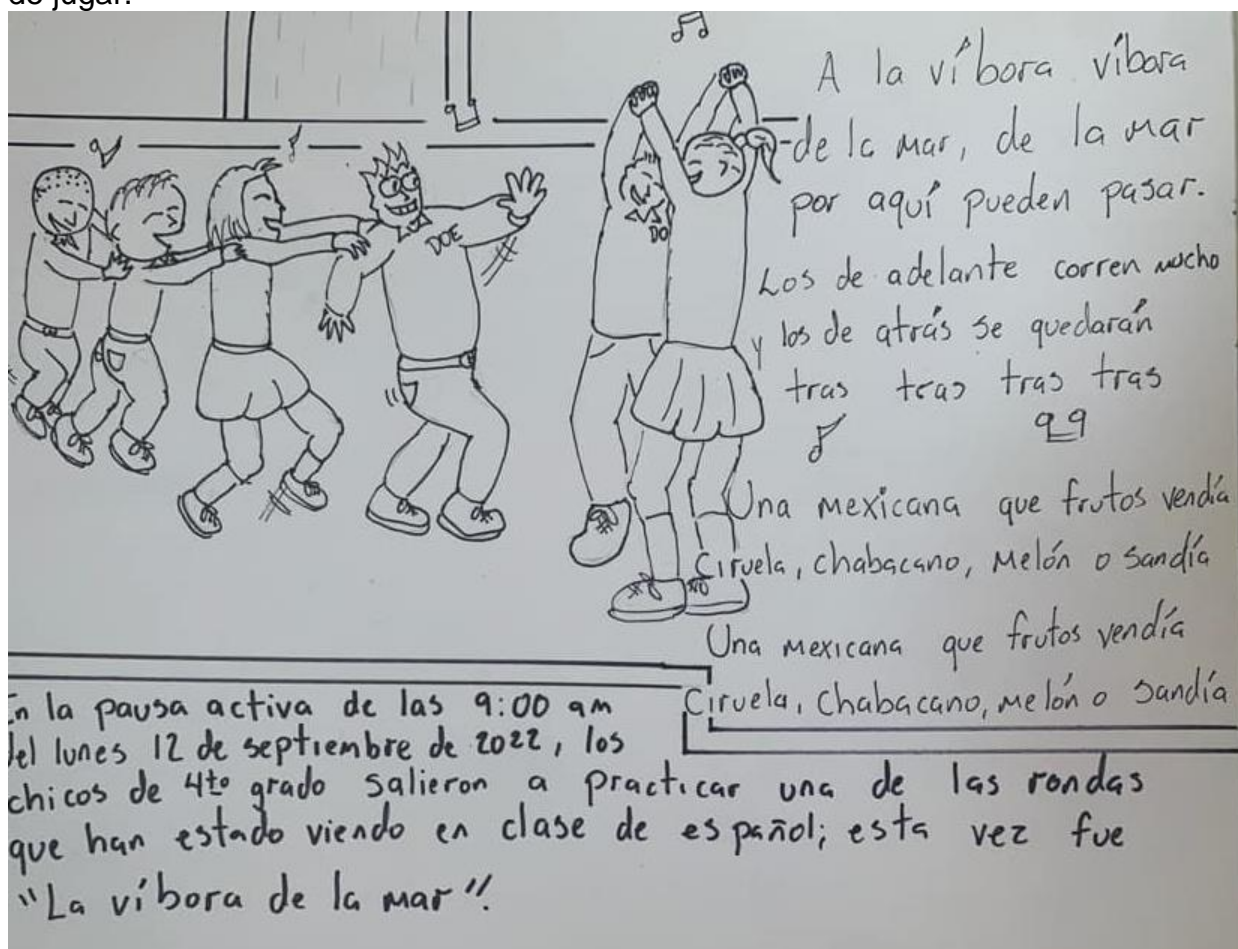 de jugar.
A la víbora víbora
de la mar, de la mar
por aquí pueden pasar.
Los de adelante corren mucho
y los de atrás se quedarán
tras tras tras tras
Una mexicana que frutos vendía
Ciruela, chabacano, Melón o Sandía
Una mexicana que frutos vendía
Ciruela, Chabacano, melón o Sandía
DOE
DO
En la pausa activa de las 9:00 am
del lunes 12 de septiembre de 2022, los
chicos de 4to grado salieron a practicar una de las rondas
que han estado viendo en clase de español; esta vez fue
"La víbora de la mar".